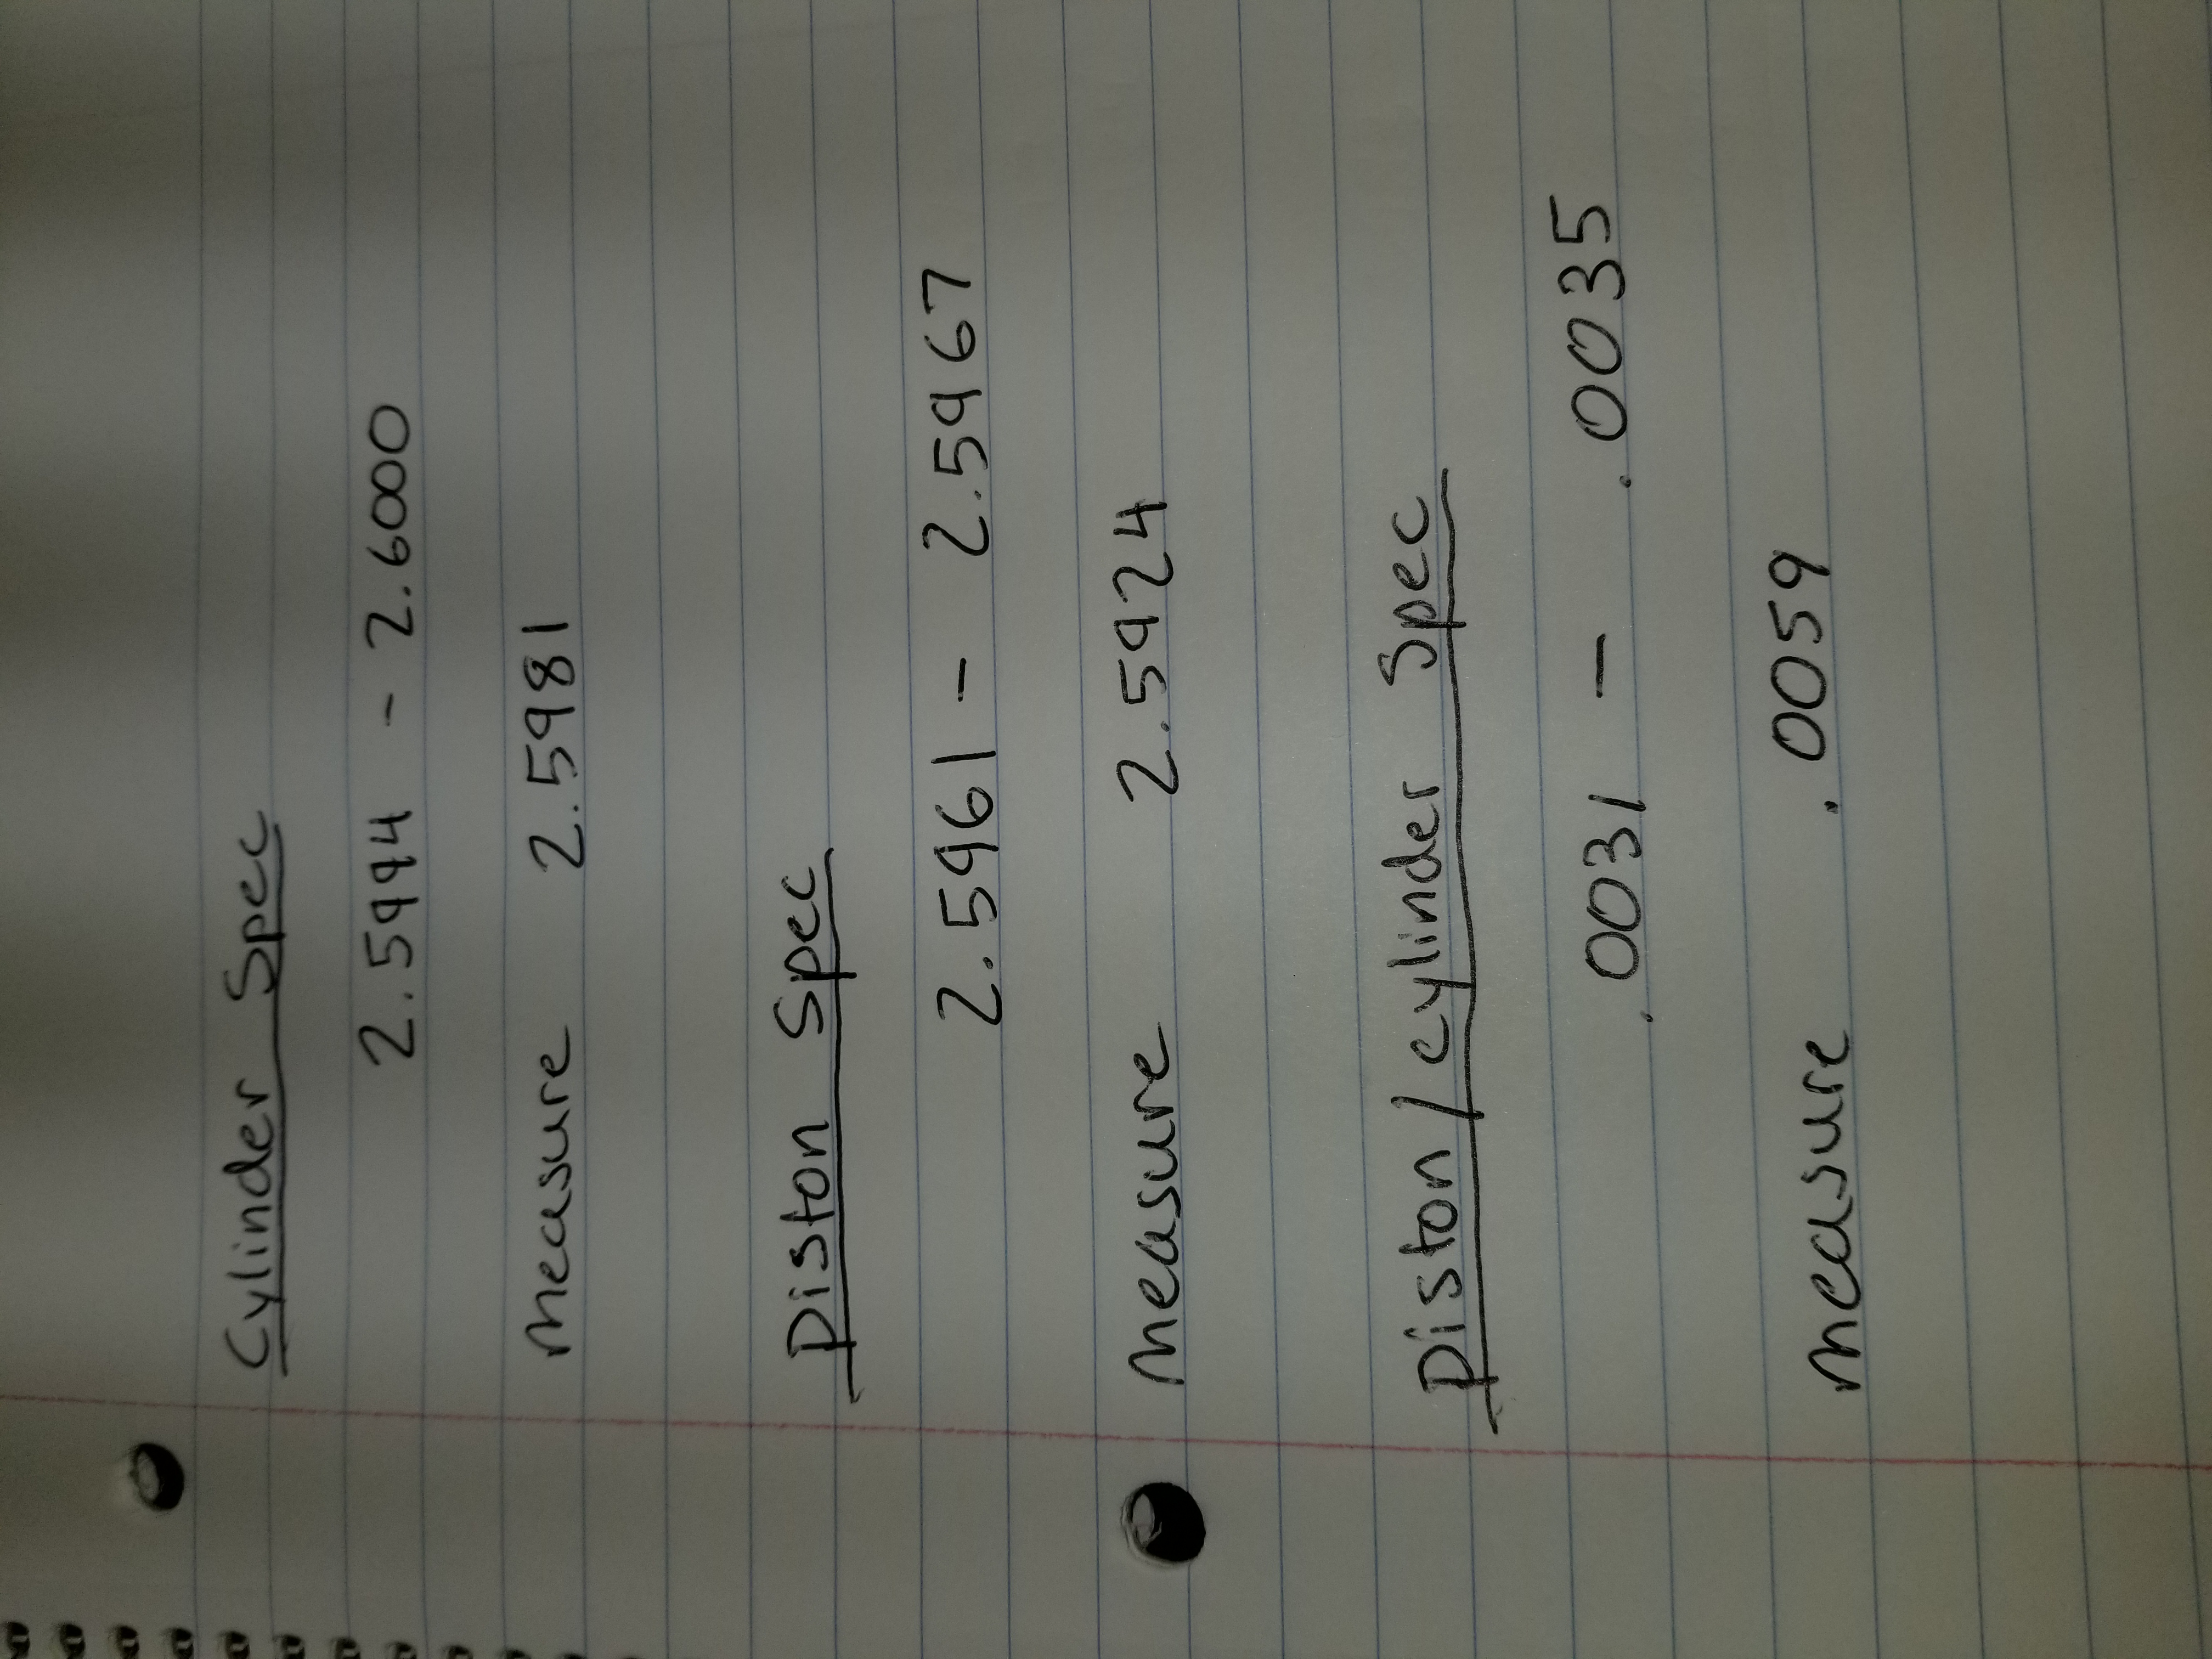 Cylinder Spec
2.5994 - 2.6000
measure 2.5981
Piston Spec
2.5961 - 2.5967
measure 2.5924
Piston/cylinder Spec
.0031 - .0035
measure .0059